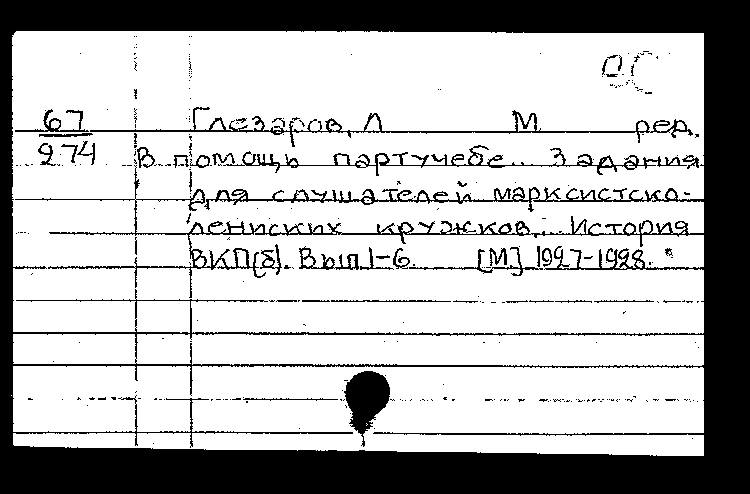 ОС
67 Глезаров, Л М ред.
274 В помощь партучебе... Задания
для слушателей марксистско-
лениских кружков... История
ВКП(б). Вып.1-6. [М.] 1927-1928.